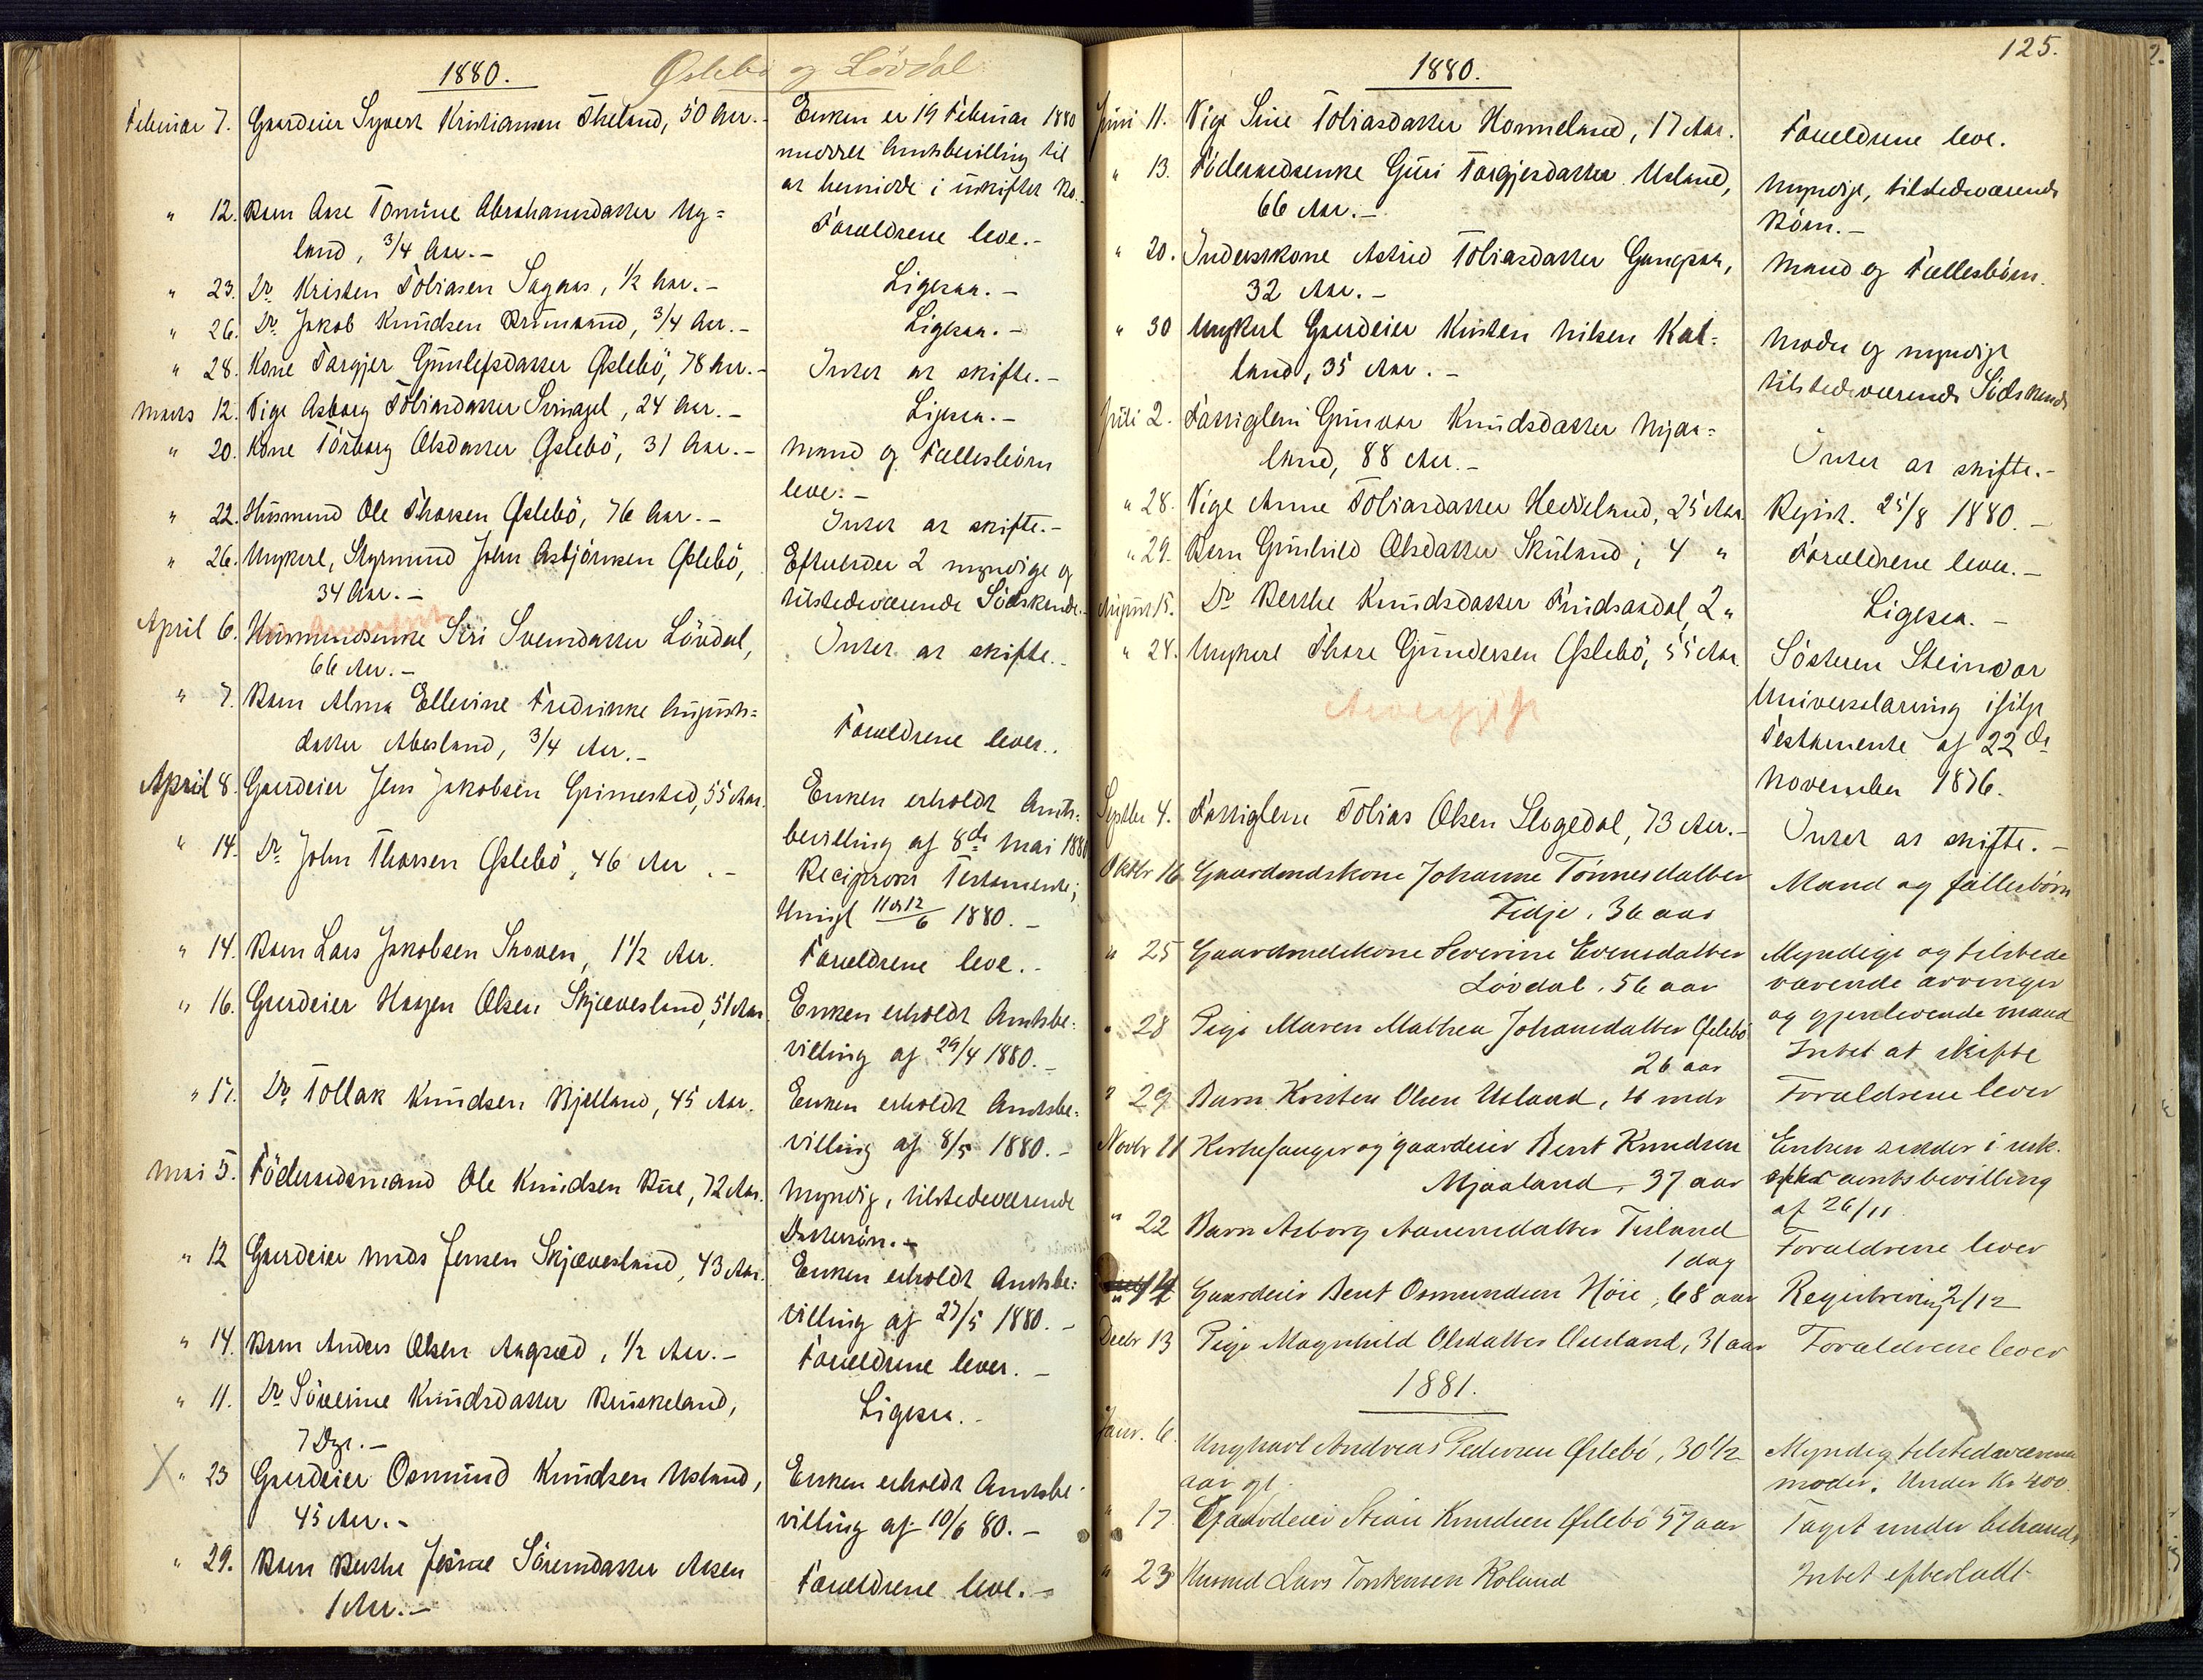 1880.
Øslebø og Lövdal
Februar 7. Gaardeier Syvert Kristiansen Theland, 50 Aar.- Enken er 19 Februar 1880
meddelt Amtsbevilling til
at hensidde i uskiftet Bo.-
" 12. Barn Ase Tomine Abrahamsdatter Ug=
land, 3/4 Aar.- Forældrene leve.-
" 23. Do Kristen Tobiasen Sagaas, 1/2 Aar.- Ligesaa.-
" 26. Do. Jakob Knudsen, 3/4 Aar.- Ligesaa.-
" 28. Kone Targjer Gunlefsdatter Øslebö, 78 Aar.- Intet at skifte.-
Marts 12. Pige Asborg Tobiasdatter, 24 Aar.- Ligesaa.-
" 20. Kone Torborg Olsdatter Øslebö, 31 Aar.- Mand og Fællesbörn
leve.-
" 22. Husmand Ole Thorsen Øslebö, 76 Aar.- Intet at skifte.-
" 26. Ungkarl, Styrmand John Asbjörnsen Øslebö,
34 Aar.- Efterlader 2 myndige og
tilstedeværende Södskende.-
April 6. Husmandsenke Siri Svendsdatter Lövdal,
66 Aar.- Intet at skifte.-
" 7. Barn Alma Ellevine Fredrikke August=
datter Abesland, 3/4 Aar.- Forældrene lever..
April 8. Gaardeier Jens Jakobsen Grimestad, 55 Aar. Enken erholdt Amts=
bevilling af 8de Mai 1880
" 14. Do. John Thorsen Øslebö, 46 Aar.- Reciprokt Testamente;
11 & 12/6 1880.-
" 14. Barn Lars Jakobsen Skoven, 1 1/2 Aar. Forældrene leve.-
" 16. Gaardeier Haagen Olsen Skjævesland, 51 Aar. Enken erholdt Amtsbe=
villing af 29/4 1880.-
" 17. Do. Tollak Knudsen Bjelland, 45 Aar. Enken erholdt Amtsbe=
villing af 8/5 1880.-
Mai 5. Föderaadsmand Ole Knudsen Bue, 72 Aar. Myndig, tilstedeværende
Dattersön.-
" 12 Gaardeier Mads Jensen Skjævesland, 43 Aar. Enken erholdt Amtsbe=
villing af 27/5 1880.-
" 14. Barn Anders Olsen, 1/2 Aar.- Forældrene lever.-
" 11. Do Söverine Knudsdatter Bruskeland,
7 Dge.- Ligesaa.-
X " 23 Gaardeier Osmund Knudsen Usland,
45 Aar.- Enken erholdt Amtsbe=
villing af 10/6 80.-
" 29. Barn Berthe Josine Sörensdatter Aasen
1 Aar.- Forældrene leve.-
125.
1880.
Juni 11. Pige Sine Tobiasdatter Honneland, 17 Aar. Forældrene leve.
" 13. Föderaadsenke Guri Torgjesdatter Usland,
66 Aar.- Myndige, tilstedeværende
Börn.-
" 20. Inderstkone Astrid Tobiasdatter,
32 Aar.- Mand og Fællesbörn.
" 30 Ungkarl Gaardeier Kristen Nilsen Kal=
land, 35 Aar.- Moder og myndige
tilstedeværende Södskende
Juli 2. Fattiglem Gunvor Knudsdatter Mjaa=
land, 88 Aar.- Intet at skifte.-
" 28. Pige Anne Tobiasdatter Heddeland, 25 Aar. Regist. 25/8 1880.-
" 29. Barn Gunhild Olsdatter Skuland, 4 " Forældrene lever.-
August 15. Do Berthe Knudsdatter, 2 " Ligesaa.-
" 24. Ungkarl Thore Gundersen Øslebö, 55 Aar. Sösteren Steinvor
Universalarving ifölge
Testamente af 22de
November 1876.
Arveafgift
Septbr 4. Fattiglem Tobias Olsen Slogedal, 73 Aar.- Intet at skifte.-
Oktbr 16 Gaardmdskone Johanne Tönnesdatter
Fidje, 36 aar Mand og fællesbörn
" 25 Gaardmdskone Severine Evensdatter
Lövdal, 56 aar Myndige og tilstede
værende arvinger
og gjenlevende mand
" 28 Pige Maren Mathea Johansdatter Øslebö
26 aar Intet at skifte
" 29 Barn Kristen Olsen Usland, 4 mdr Forældrene lever
Novbr 11 Kirkesanger og gaardeier Bent Knudsen
Mjaaland, 37 aar Enken sidder i usk.
amtsbevilling
af 26/11.
" 22 Barn Asborg Aanensdatter
1 dag Forældrene lever
" 14 Gaardeier Bent Osmundsen Höie, 68 aar Registrering 2/12
Decbr 13 Pige Magnhild Olsdatter, 31 aar Forældrene lever
1881.
Janr. 6. Ungkarl Andreas Pedersen Øslebö, 30 1/2
aar gl. Myndig tilstedeværende
moder. Under Kr 400.
" 17 Gaardeier Knudsen Øslebö 57 aar Taget under behandl
" 23 Husmd Lars Torkensen Röland Intet efterladt